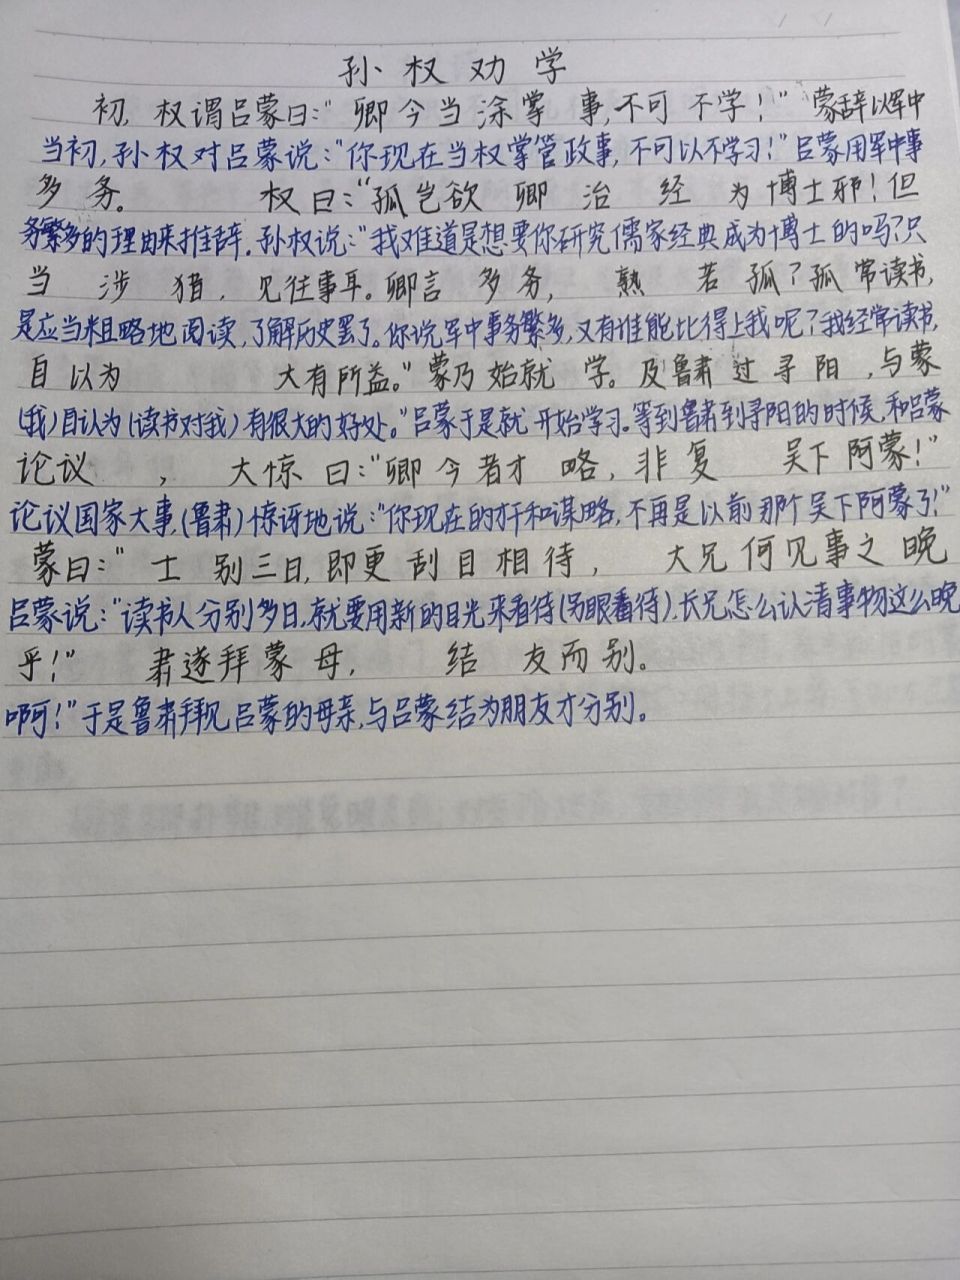 孙权劝学
初,权谓吕蒙曰:"卿今当涂掌事,不可不学!"蒙辞以军中
当初,孙权对吕蒙说:"你现在当权掌管政事,不可以不学习!"吕蒙用军中事
多务。权曰:"孤岂欲卿治经为博士邪!但
务繁多的理由来推辞。孙权说:"我难道是想要你研究儒家经典成为博士的吗?只
当涉猎,见往事耳。卿言多务,熟若孤?孤常读书,
是应当粗略地阅读,了解历史罢了。你说军中事务繁多,又有谁能比得上我呢?我经常读书,
自以为大有所益。"蒙乃始就学。及鲁肃过寻阳,与蒙
(我)自认为(读书对我)有很大的好处。"吕蒙于是就开始学习。等到鲁肃到寻阳的时候,和吕蒙
论议,大惊曰:"卿今者才略,非复吴下阿蒙!"
论议国家大事,(鲁肃)惊讶地说:"你现在的才和谋略,不再是以前那个吴下阿蒙了!"
蒙曰:"士别三日,即更刮目相待,大兄何见事之晚
吕蒙说:"读书人分别多日,就要用新的目光来看待(另眼看待),长兄怎么认清事物这么晚
乎!"肃遂拜蒙母,结友而别。
啊!"于是鲁肃拜见吕蒙的母亲,与吕蒙结为朋友才分别。